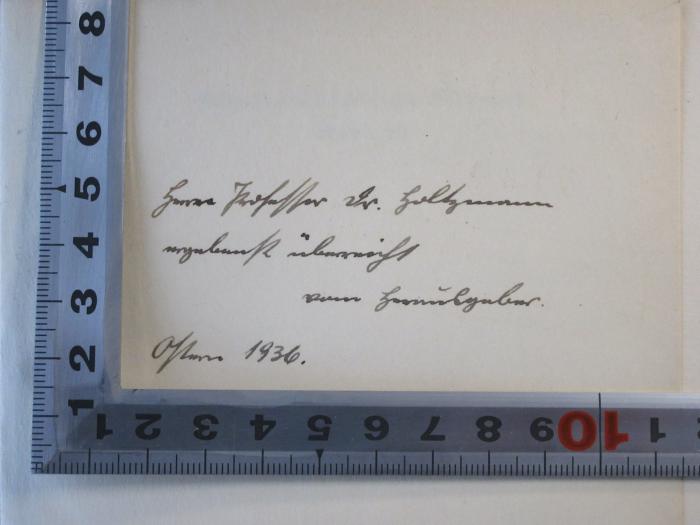 Herrn Professor Dr. Holtzmann
ergebenst überreicht
vom Herausgeber.
Ostern 1936.
8
7
6
5
4
3
2
1
1 2 3 4 5 6 7 8 9 10 1